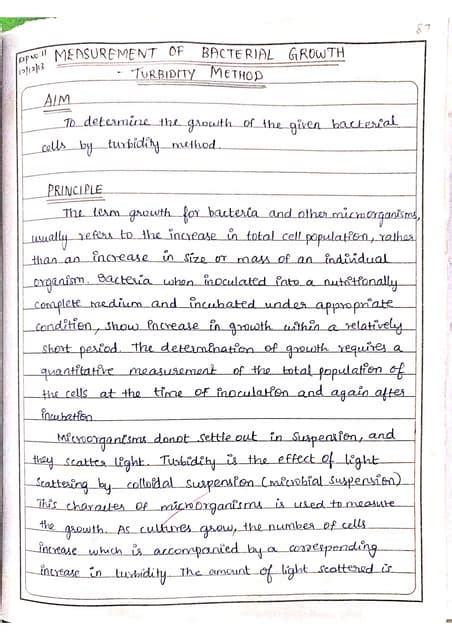 87
EXP NO: 11
MEASUREMENT OF BACTERIAL GROWTH
- TURBIDITY METHOD
AIM
To determine the growth of the given bacterial
cells by turbidity method.
PRINCIPLE
The term growth for bacteria and other microorganisms,
usually refers to the increase in total cell population, rather
than an increase in size or mass of an individual
organism. Bacteria when inoculated into a nutritionally
complete medium and incubated under appropriate
condition, show increase in growth within a relatively
short period. The determination of growth requires a
quantitative measurement of the total population of
the cells at the time of inoculation and again after
incubation.
Microorganisms donot settle out in suspension, and
they scatter light. Turbidity is the effect of light
scattering by colloidal suspension (microbial suspension)
This character of microorganisms is used to measure
the growth. As cultures grow, the number of cells
increase which is accompanied by a corresponding
increase in turbidity. The amount of light scattered is